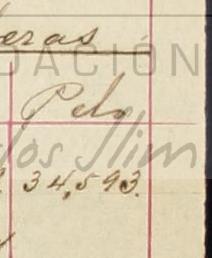 eras
DACIÓN
Pelo
los Slim
34,593.